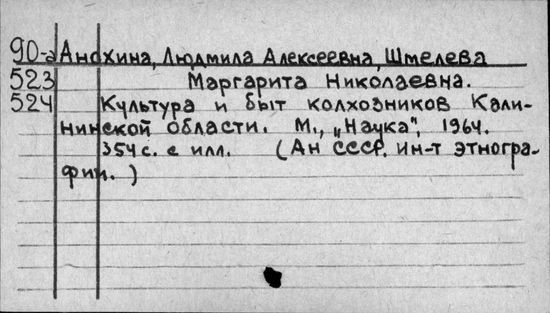 90-а Анохина, Людмила Алексеевна, Шмелева
523 Маргарита Николаевна.
524 Культура и быт колхозников Кали-
нинской области. М., „Наука", 1964.
354 с. с илл. (Ан СССР. ин-т этногра-
фии. )